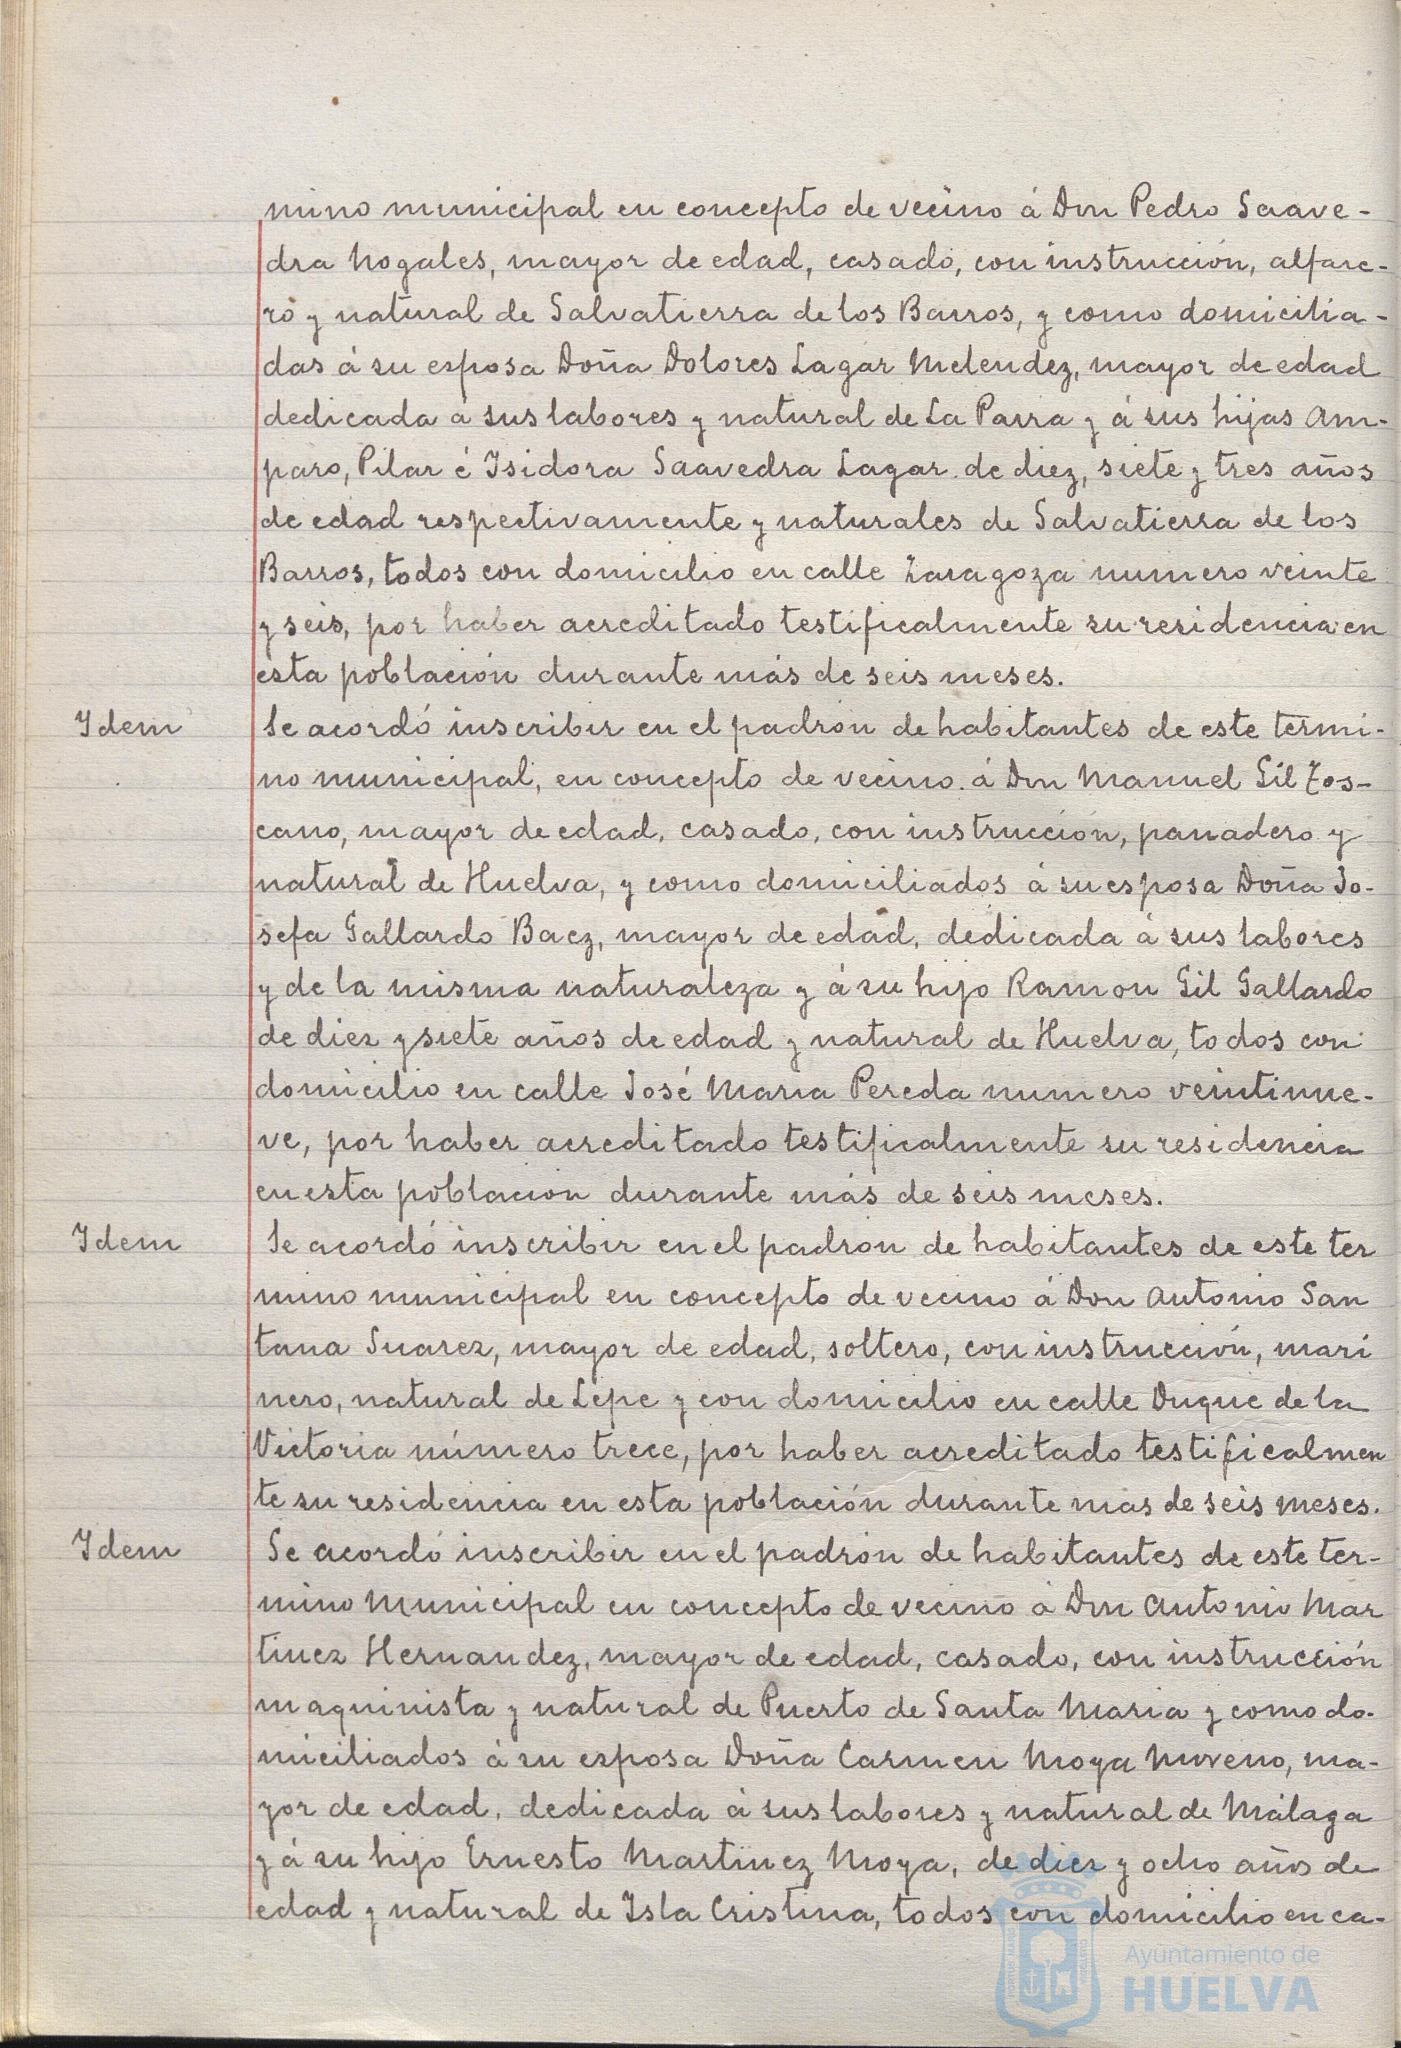 mino municipal en concepto de vecino á Don Pedro Saave-
dra Nogales, mayor de edad, casado, con instrucción, alfare-
ro y natural de Salvatierra de los Barros, y como domicilia-
das á su esposa Doña Dolores Lagar Melendez, mayor de edad
dedicada a sus labores y natural de La Parra y á sus hijas Am-
paro, Pilar é Isidora Saavedra Lagar de diez, siete y tres años
de edad respectivamente y naturales de Salvatierra de los
Barros, todos con domicilio en calle Zaragoza numero veinte
y seis, por haber acreditado testificalmente su residencia en
esta población durante más de seis meses.
Idem Se acordó inscribir en el padrón de habitantes de este termi-
no municipal, en concepto de vecino á Don Manuel Gil Tos-
cano, mayor de edad, casado, con instrucción, panadero y
natural de Huelva, y como domiciliados á su esposa Doña Jo-
sefa Gallardo Baez, mayor de edad, dedicada á sus labores
y de la misma naturaleza y á su hijo Ramon Gil Gallardo
de diez y siete años de edad y natural de Huelva, todos con
domicilio en calle José Maria Pereda numero veintinue-
ve, por haber acreditado testificalmente su residencia
en esta poblacion durante más de seis meses.
Idem Se acordó inscribir en el padron de habitantes de este ter
mino municipal en concepto de vecino á Don Antonio San
tana Suarez, mayor de edad, soltero, con instrucción, mari
nero, natural de Lepe y con domicilio en calle Duque de la
Victoria número trece, por haber acreditado testificalmen
te su residencia en esta población durante mas de seis meses.
Idem Se acordó inscribir en el padrón de habitantes de este ter-
mino municipal en concepto de vecino á Don Antonio Mar
tinez Hernandez, mayor de edad, casado, con instrucción
maquinista y natural de Puerto de Santa Maria y como do-
miciliados á su esposa Doña Carmen Moya Moreno, ma-
yor de edad, dedicada á sus labores y natural de Málaga
y á su hijo Ernesto Martinez Moya, de diez y ocho años de
edad y natural de Isla Cristina, todos con domicilio en ca-
Ayuntamiento de
HUELVA